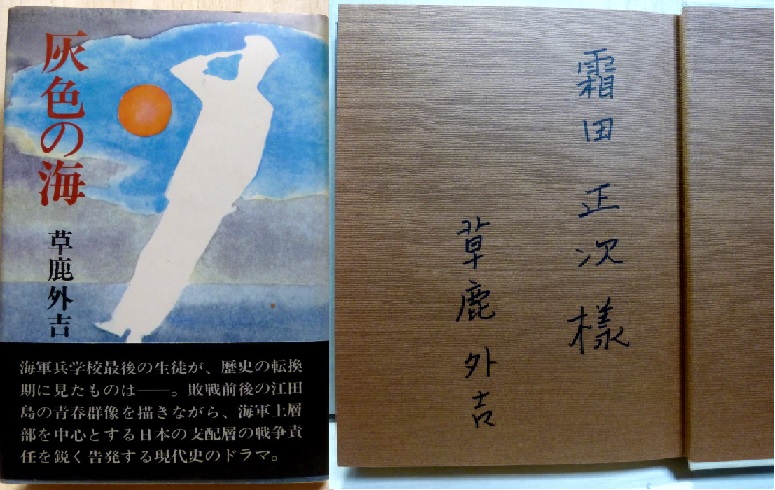 灰色の海
草鹿外吉
海軍兵学校最後の生徒が、歴史の転換
期に見たものは――。敗戦前後の江田
島の青春群像を描きながら、海軍上層
部を中心とする日本の支配層の戦争責
任を鋭く告発する現代史のドラマ。
霜田正次様
草鹿外吉